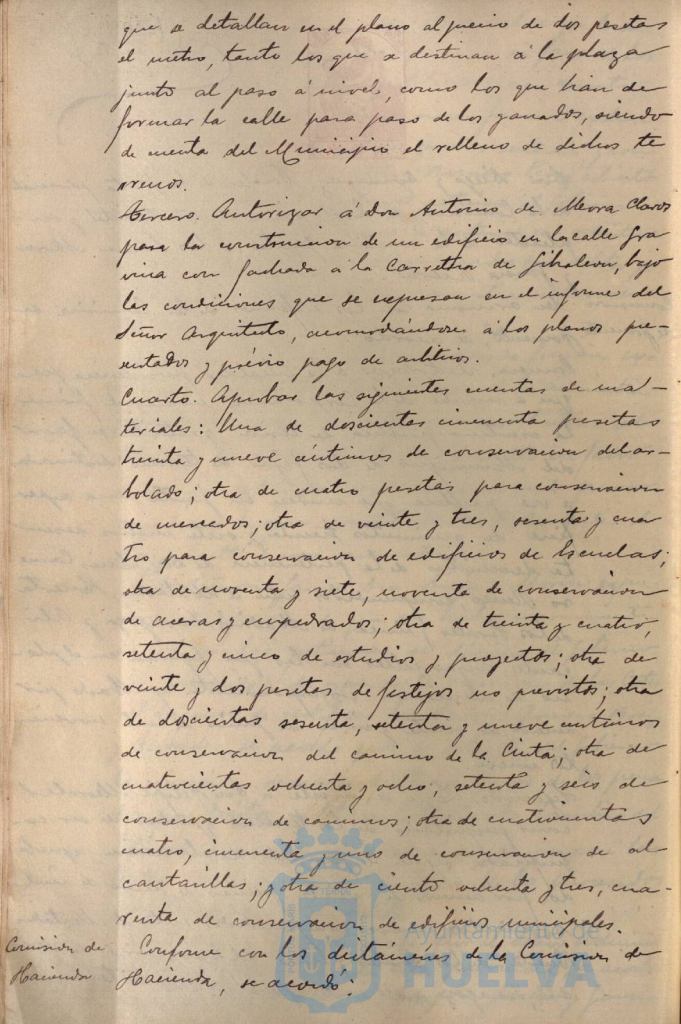 que se detallan en el plano al precio de dos pesetas
el metro, tanto los que se destinan á la plaza
junto al paso á nivel, como los que han de
formar la calle para paso de los ganados, siendo
de cuenta del Municipio el relleno de dichos te
rrenos.
Tercero. Autorizar á don Antonio de Mora Claros
para la construccion de un edificio en la calle Gra
vina con fachada á la Carretera de Gibraleon, bajo
las condiciones que se expresan en el informe del
Señor Arquitecto, acomodándose á los planos pre-
sentados y prévio pago de arbitrios.
Cuarto. Aprobar las siguientes cuentas de ma-
teriales: Una de doscientas cincuenta pesetas
treinta y nueve céntimos de conservacion del ar-
bolado; otra de cuatro pesetas para conservacion
de mercados; otra de veinte y tres, sesenta y cua
tro para conservacion de edificios de Escuelas;
otra de noventa y siete, noventa de conservacion
de aceras y empedrados; otra de treinta y cuatro,
setenta y cinco de estudios y proyectos; otra de
veinte y dos pesetas de festejos no previstos; otra
de doscientas sesenta, setenta y nueve centimos
de conservacion del camino de la Cinta; otra de
cuatrocientas ochenta y ocho, setenta y seis de
conservacion de caminos; otra de cuatrocientas
cuatro, cincuenta y uno de conservacion de al
cantarillas; y otra de ciento ochenta y tres, cua-
renta de conservacion de edificios municipales.
Comision de Hacienda
Conforme con los dictámenes de la Comision de
Hacienda, se acordó:
Ayuntamiento de
HUELVA